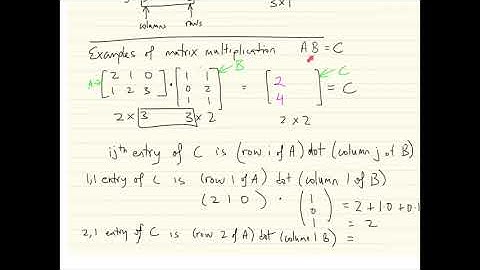 columns rows 3×1
Examples of matrix multiplication AB = C
A→ [2 1 0; 1 2 3] · [1 1; 0 2; 1 1] ← B = [2; 4] ← C = C
2 × 3 3 × 2 2 × 2
ijth entry of C is (row i of A) dot (column j of B)
1,1 entry of C is (row 1 of A) dot (column 1 of B)
(2 1 0) · (1; 0; 1) = 2+1.0+0.1
= 2
2,1 entry of C is (row 2 of A) dot (column 1 B) =